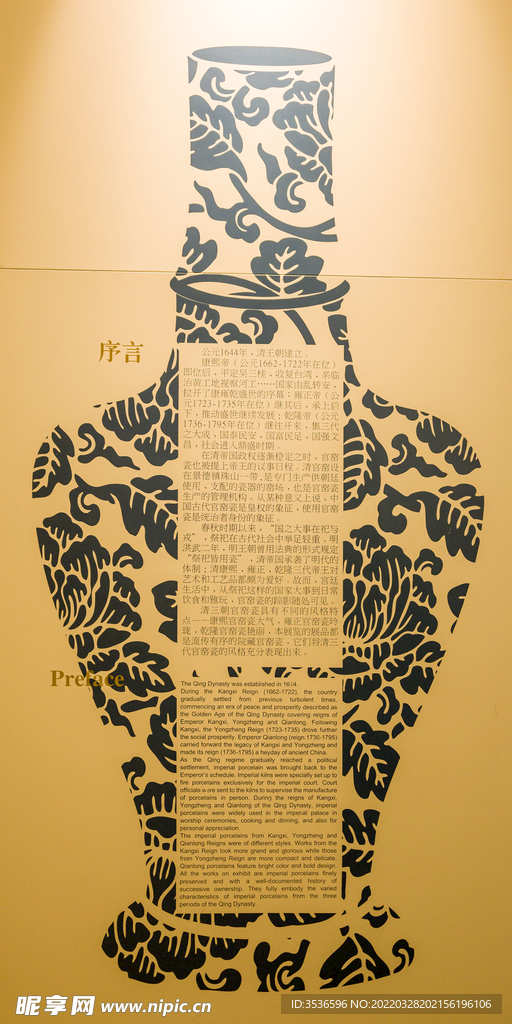 序言
公元1644年，清王朝建立。
康熙帝（公元1662-1722年在位）
即位后，平定吴三桂，收复台湾，亲临
治黄工地视察河工……国家由乱转安，
拉开了康雍乾盛世的序幕；雍正帝（公
元1723-1735年在位）继其后，承上启
下，推动盛世继续发展；乾隆帝（公元
1736-1795年在位）继往开来，集三代
之大成，国泰民安，国富民足，国强文
昌，社会进入鼎盛时期。
在清帝国政权逐渐稳定之时，官窑
瓷也被提上帝王的议事日程。清官窑设
在景德镇珠山一带，是专门生产供朝廷
使用、支配的瓷器的窑场，也是官窑瓷
生产的管理机构。从某种意义上说，中
国古代官窑瓷是皇权的象征，使用官窑
瓷是统治者身份的象征。
春秋时期以来，“国之大事在祀与
戎”，祭祀在古代社会中举足轻重。明
洪武二年，明王朝曾用法典的形式规定
“祭祀皆用瓷”，清帝国承袭了明代的
体制；清康熙、雍正、乾隆三代帝王对
艺术和工艺品都颇为爱好。故而，宫廷
生活中，从祭祀这样的国家大事到日常
饮食和雅玩，官窑瓷的踪影随处可见。
清三朝官窑瓷具有不同的风格特
点——康熙官窑瓷大气，雍正官窑瓷玲
珑，乾隆官窑瓷艳丽，本展览的展品都
是流传有序的院藏官窑瓷，它们将清三
代官窑瓷的风格充分表现出来。
Preface
The Qing Dynasty was established in 1644.
During the Kangxi Reign (1662-1722), the country
gradually settled from previous turbulent times,
commencing an era of peace and prosperity described as
the Golden Age of the Qing Dynasty covering reigns of
Emperor Kangxi, Yongzheng and Qianlong. Following
Kangxi, the Yongzheng Reign (1723-1735) drove further
the social prosperity. Emperor Qianlong (reign.1736-1795)
carried forward the legacy of Kangxi and Yongzheng and
made its reign (1736-1795) a heyday of ancient China.
As the Qing regime gradually reached a political
settlement, imperial porcelain was brought back to the
Emperor's schedule. Imperial kilns were specially set up to
fire porcelains exclusively for the imperial court. Court
officials were sent to the kilns to supervise the manufacture
of porcelains in person. During the reigns of Kangxi,
Yongzheng and Qianlong of the Qing Dynasty, imperial
porcelains were widely used in the imperial palace in
worship ceremonies, cooking and dinning, and also for
personal appreciation.
The imperial porcelains from Kangxi, Yongzheng and
Qianlong Reigns were of different styles. Works from the
Kangxi Reign look more grand and glorious while those
from Yongzheng Reign are more compact and delicate.
Qianlong porcelains feature bright color and bold design.
All the works on exhibit are imperial porcelains finely
preserved and with a well-documented history of
successive ownership. They fully embody the varied
characteristics of imperial porcelains from the three
periods of the Qing Dynasty.
昵享网 www.nipic.cn
ID:3536596 NO:20220328202156196106